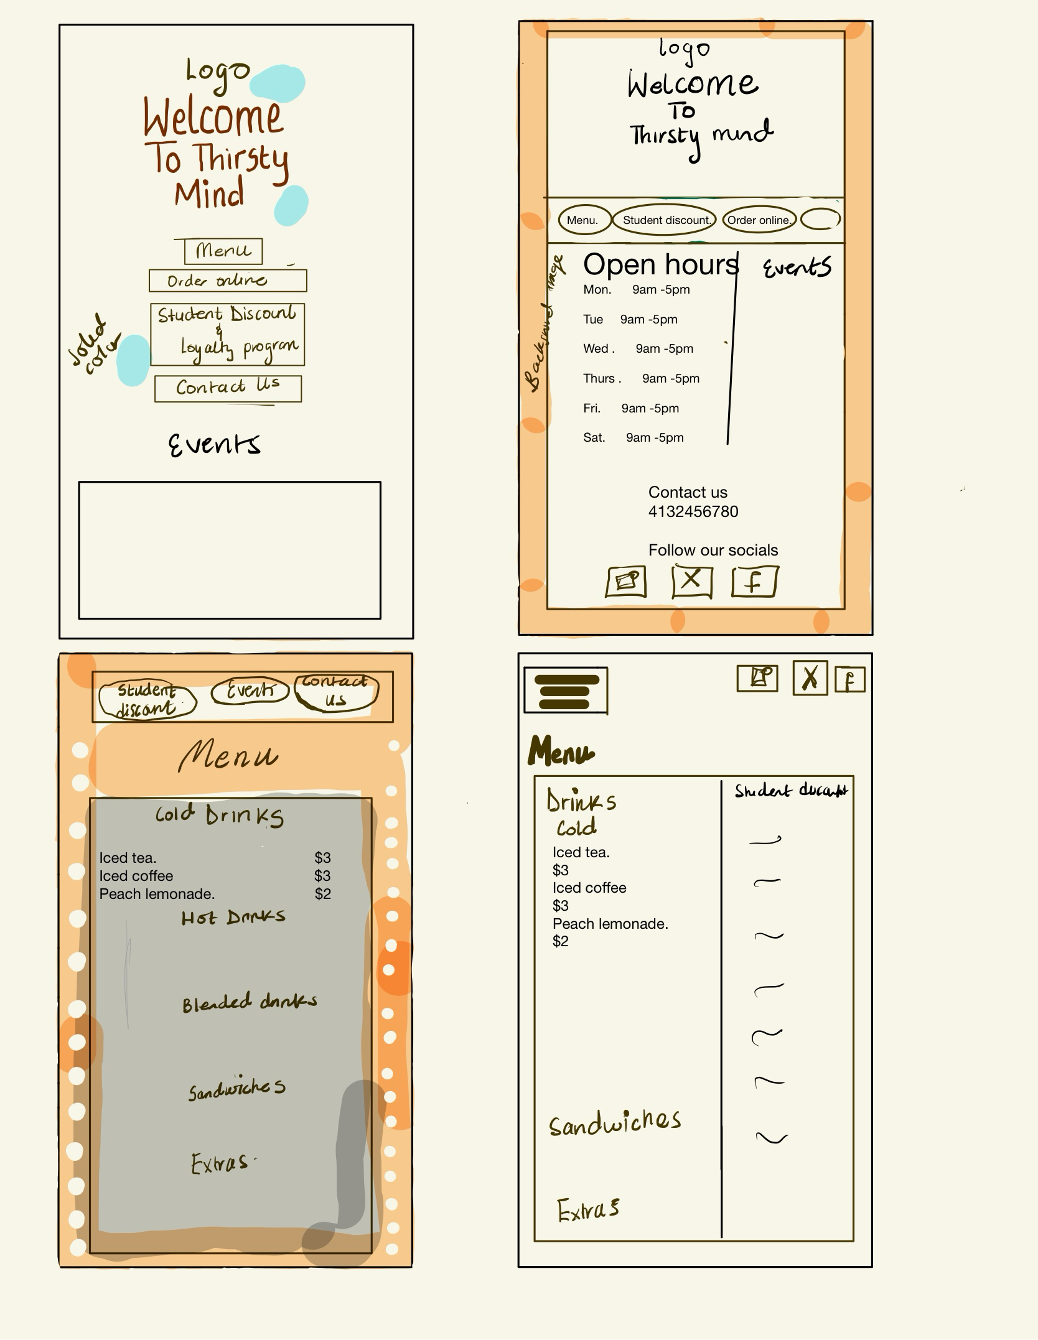 Logo
Welcome
To Thirsty
Mind
Menu
Order online
Student Discount
&
Loyalty program
Contact Us
Solid
color
Events
logo
Welcome
To
Thirsty mind
Menu.
Student discount.
Order online.
Background image
Open hours
Events
Mon. 9am -5pm
Tue 9am -5pm
Wed . 9am -5pm
Thurs . 9am -5pm
Fri. 9am -5pm
Sat. 9am -5pm
Contact us
4132456780
Follow our socials
X
f
Student
discount
Events
Contact
us
Menu
Cold Drinks
Iced tea. $3
Iced coffee $3
Peach lemonade. $2
Hot Drinks
Blended drinks
Sandwiches
Extras.
X
f
Menu
Drinks
Cold
Iced tea.
$3
Iced coffee
$3
Peach lemonade.
$2
Sandwiches
Extras
Student discount